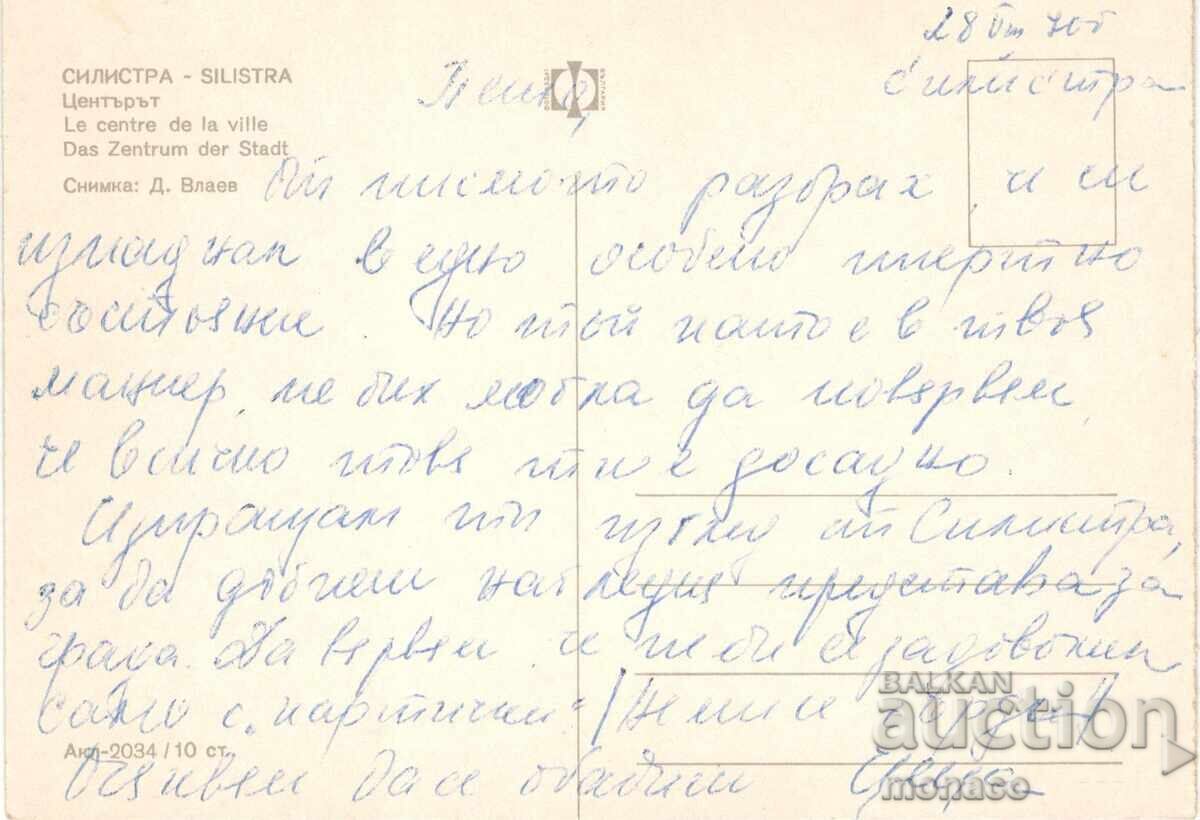 28 VIII 70г
Силистра
СИЛИСТРА - SILISTRA
Центърът
Le centre de la ville
Das Zentrum der Stadt
Снимка: Д. Влаев
Пенко,
От писмото разбрах, че си
изпаднал в едно особено инертно
състояние. Но тъй като е в твоя
маниер, не бих могла да повярвам,
че всичко това ти е досадно.
Изпращам ти изглед от Силистра,
за да добиеш нагледна представа за
града. Да вярвам, че не би се задоволил
само с "картички"? /Не ми се сърди/
Очаквам да се обадиш Цеца
Акл-2034/10 ст.
BALKAN
auction
monaco